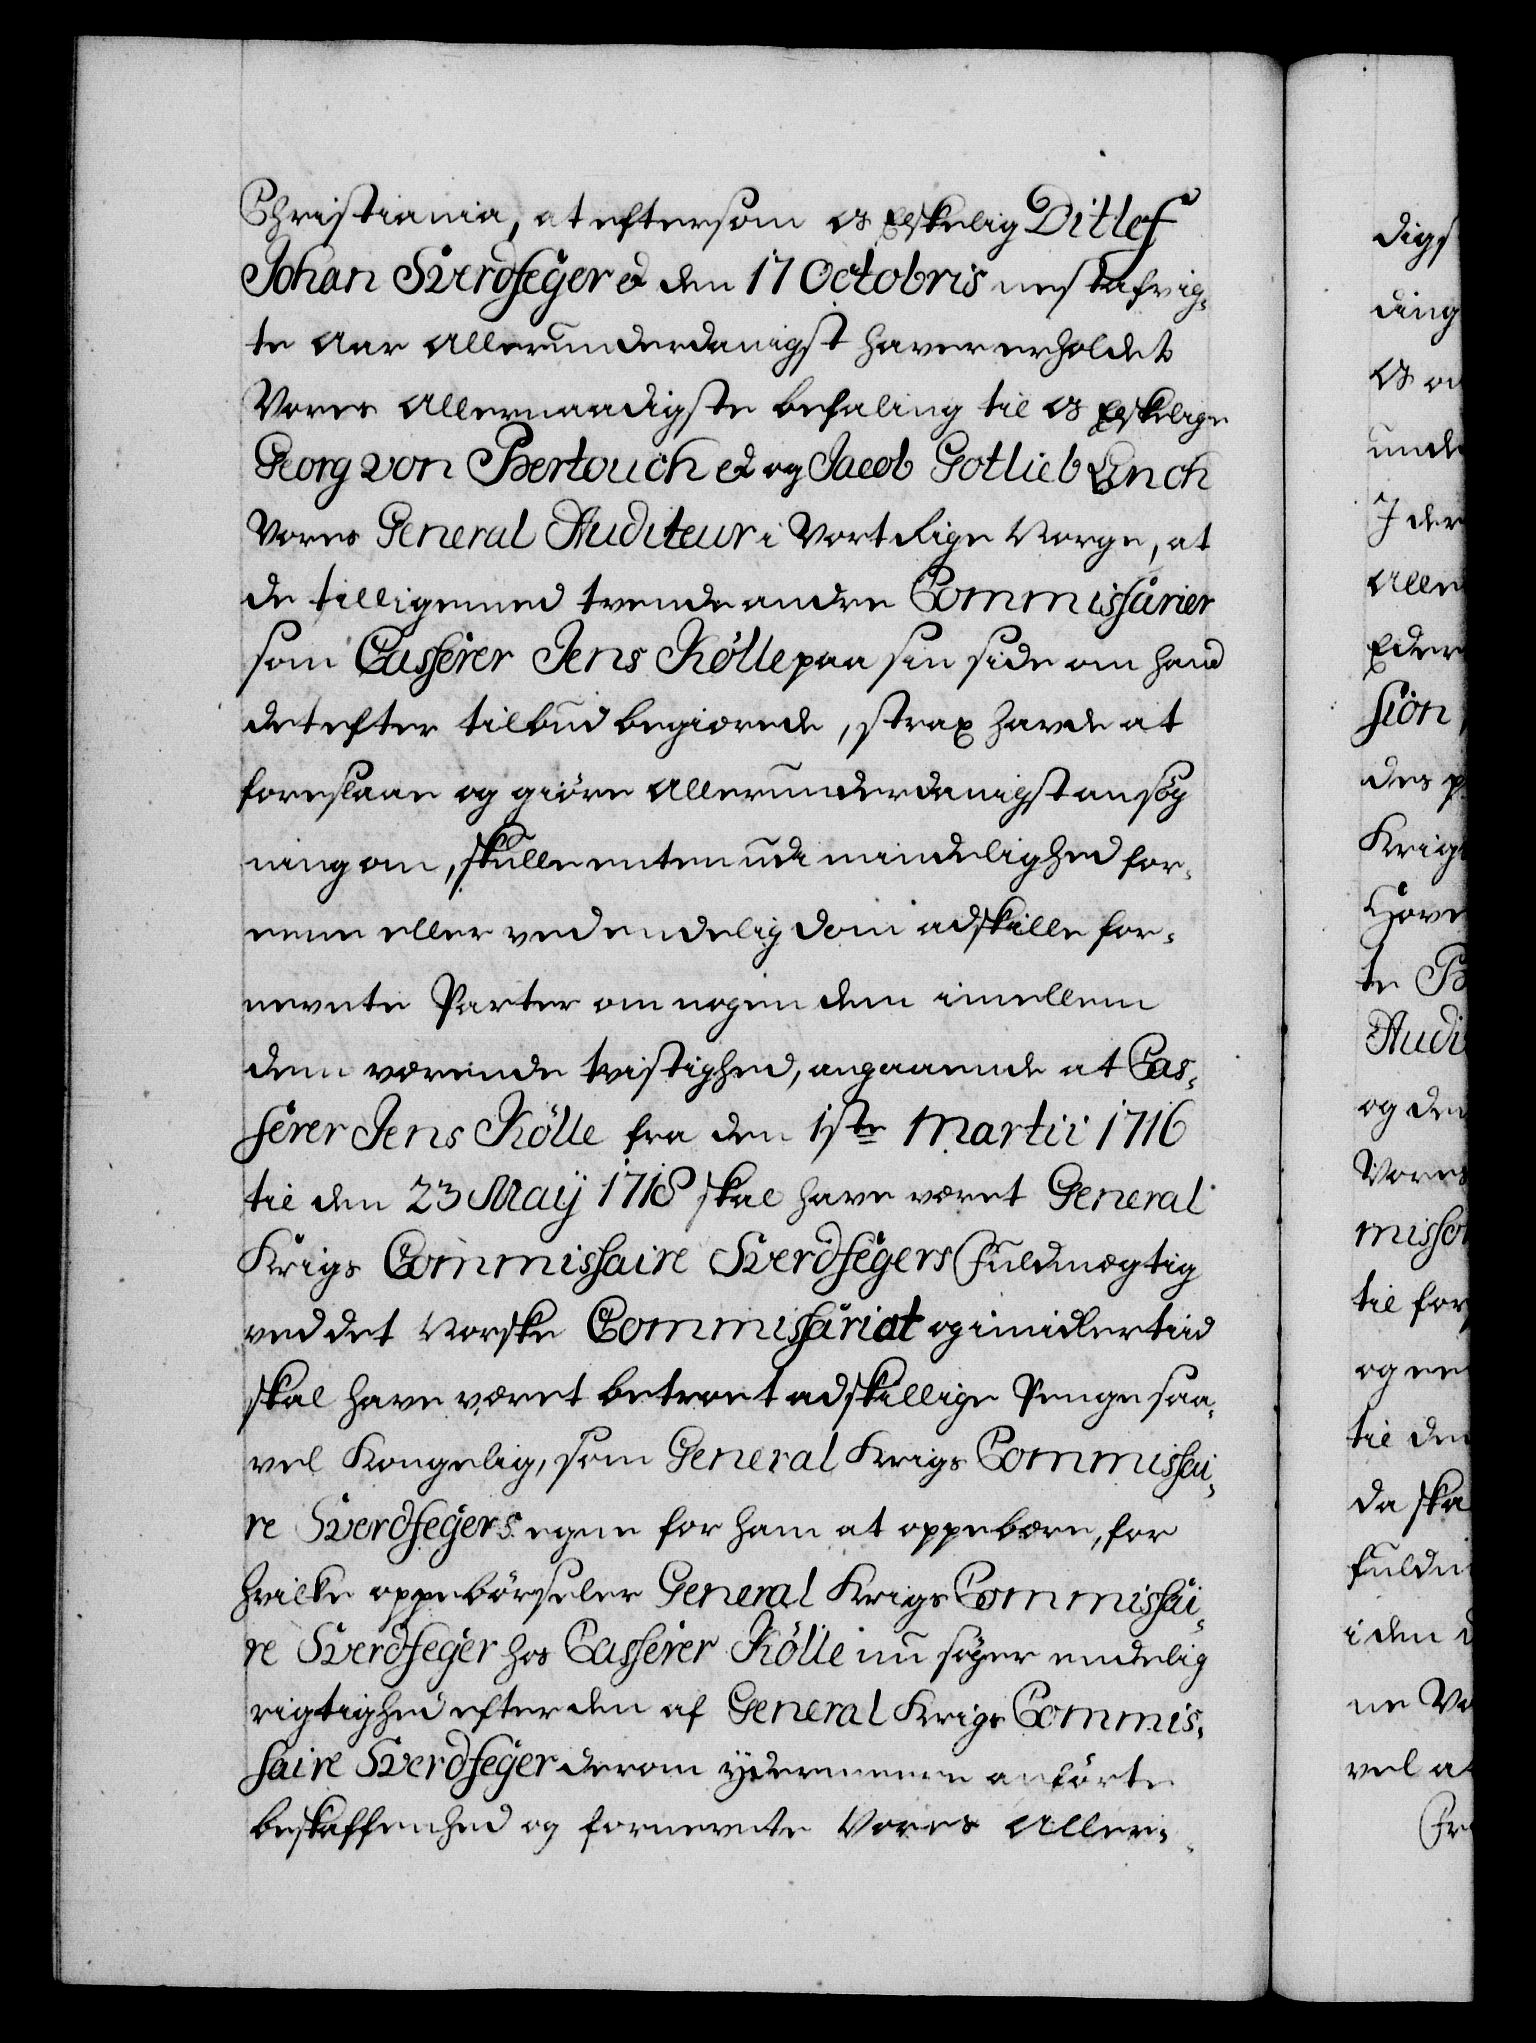 Christiania, at eftersom os Elskelig Ditlef
Johan Sverdfeger &c den 17 Octobris nestafvig-
te Aar Allerunderdanigst haver erholdet
Vores Allernaadigste befaling til os Elskelige
Georg von Bertouch &c og Jacob Gotlieb Linch
Vores General Auditeur i Vort Rige Norge, at
de tilligemed tvende andre Commissarier
som Casserer Jens Kölle paa sin side om hand
det efter tilbud begiærede, strax havde at
foreslaae og giøre Allerunderdanigst ansøg
ning om, skulle enten udi mindelighed for-
eene eller ved endelig dom adskille for-
nevnte Parter om nogen dem imellem
dem værende tvistighed, angaaende at Cas-
serer Jens Kölle fra den 1ste Martii 1716
til den 23 Maij 1718 skal have været General
Krigs Commissaire Sverdfegers Fuldmægtig
ved det Norske Commissariat og imidlertiid
skal have været betroet adskillige Penge saa-
vel Kongelig, som General Krigs Commissai-
re Sverdfegers egne for ham at oppebære, for
hvilke oppebørseler General Krigs Commissai-
re Sverdfeger hos Casserer Kölle nu søger endelig
rigtighed efter den af General Krigs Commis-
saire Sverdfeger derom ydermeere anførte
beskaffenhed og fornevnte Vores Aller-
digs
ding
os
unde
I der
Aller
Eder
sion
des p
Krigs
Hove
te B
Audi
og den
Vores
missa
til for
og
til den
da ska
fuld
i den d
ne Vo
vel at
Fr